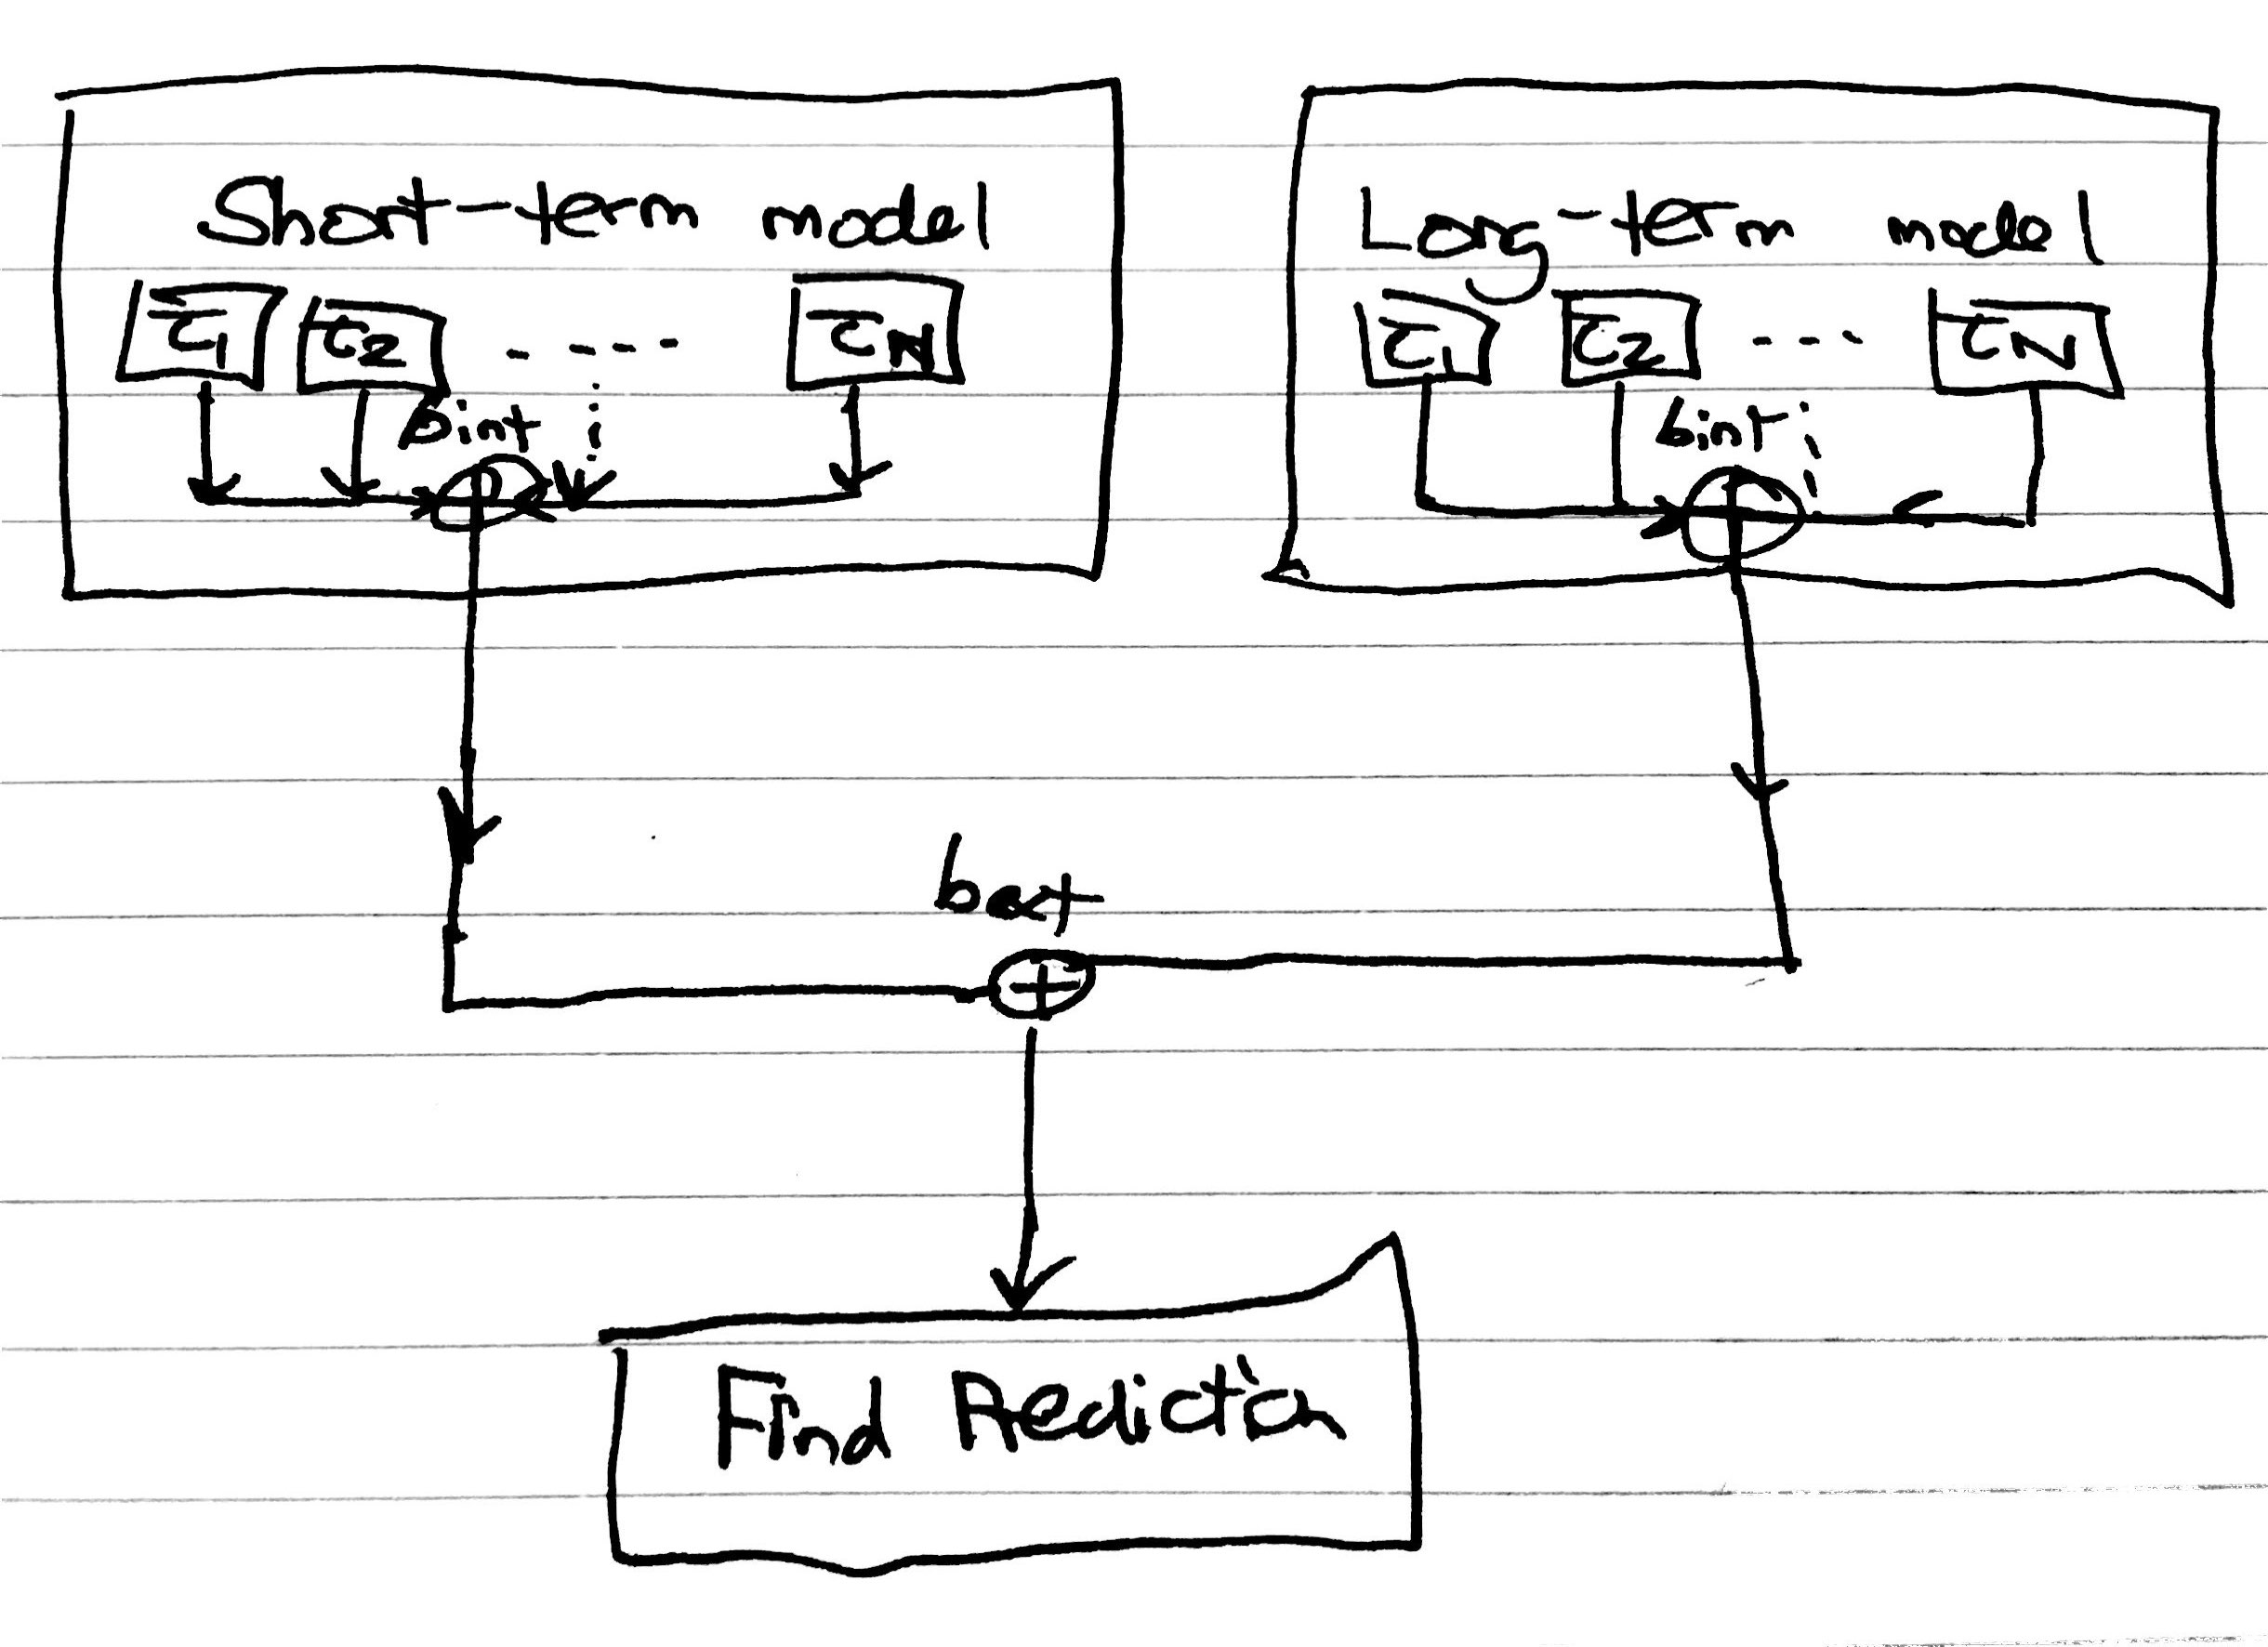 Short-term model
τ1 τ2 - - - - - τN
bint
Long-term model
τ1 τ2 - - - - τN
bint
bext
Find Prediction